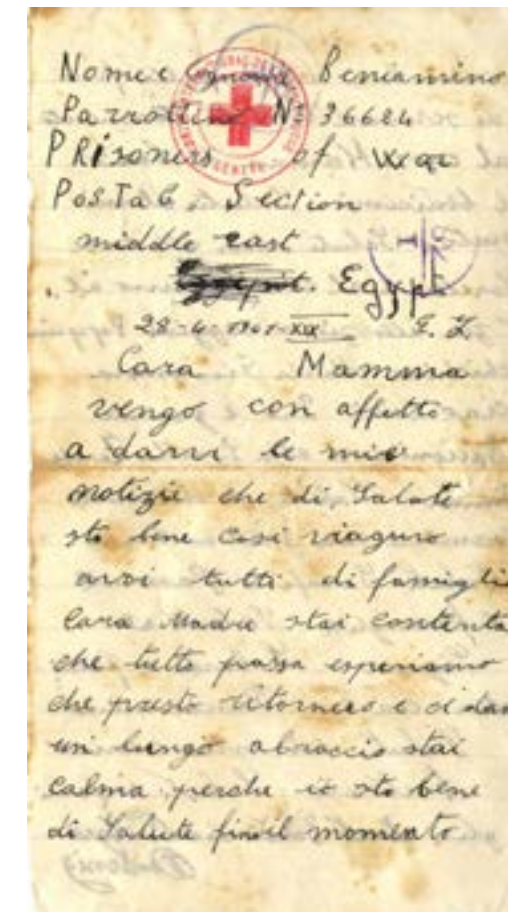 Nome e Cognome Beniamino
Parrottino N. 36684
PRisoners of war
PosTa 6. Section
middle east
Egypt
28-4-1941-XIX
Cara Mamma
vengo con affetto
a darvi le mie
notizie che di Salute
sto bene cosi viaguro
a voi tutti di famiglia
Cara Madre stai contenta
che tutto passa esperiamo
che presto ritornero e di dar
un lungo abraccio stai
calma perche io sto bene
di Salute fin il momento